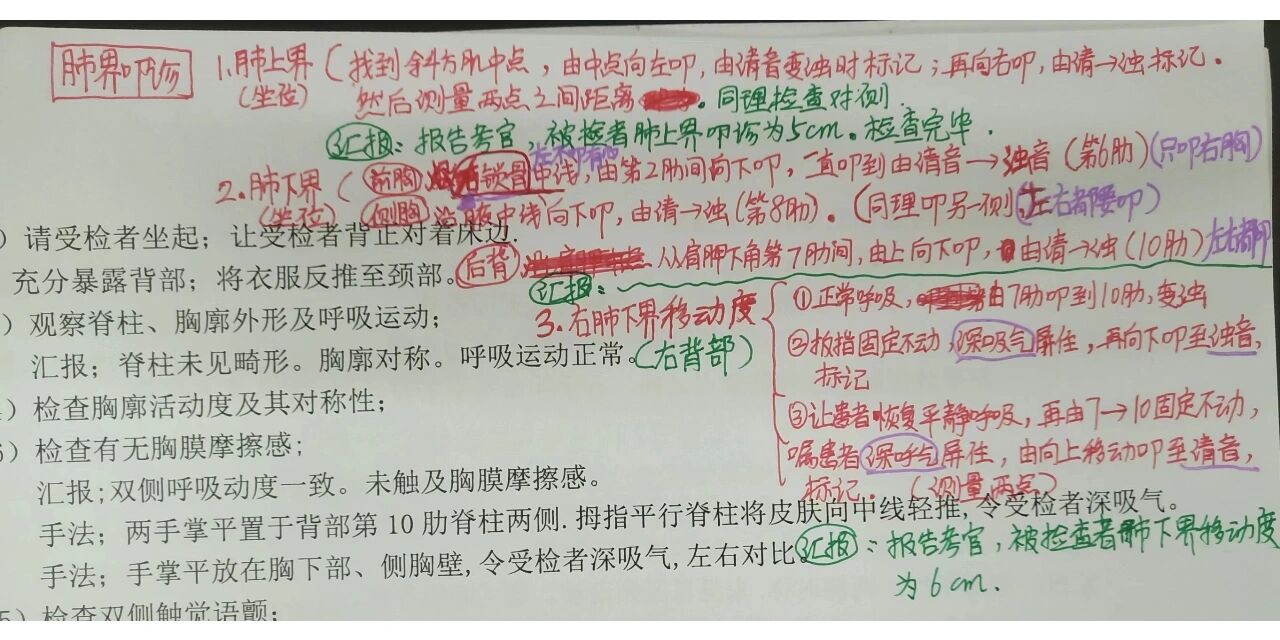 肺界叩诊
1.肺上界（找到斜方肌中点，由中点向左叩，由清音变浊时标记；再向右叩，由清→浊标记。
（坐位） 然后测量两点之间距离。同理检查对侧.
汇报：报告考官，被检者肺上界叩诊为5cm。检查完毕.
2.肺下界（前胸 锁骨中线，由第2肋间向下叩，一直叩到由清音→浊音（第6肋）（只叩右胸）
（坐位） 侧胸 沿腋中线向下叩，由清→浊（第8肋）。（同理叩另一侧，左右都要叩）
）请受检者坐起；让受检者背正对着床边.
充分暴露背部；将衣服反推至颈部。
后背 从肩胛下角第7肋间，由上向下叩，由清→浊（10肋）左右都叩
汇报：
）观察脊柱、胸廓外形及呼吸运动；
汇报；脊柱未见畸形。胸廓对称。呼吸运动正常。
3.右肺下界移动度
（右背部）
①正常呼吸，由7肋叩到10肋，变浊
②扳指固定不动，深吸气屏住，再向下叩至浊音，
标记
③让患者恢复平静呼吸，再由7→10固定不动，
嘱患者深呼气屏住，由向上移动叩至清音，
标记。（测量两点）
）检查胸廓活动度及其对称性；
）检查有无胸膜摩擦感；
汇报；双侧呼吸动度一致。未触及胸膜摩擦感。
手法；两手掌平置于背部第 10 肋脊柱两侧.拇指平行脊柱将皮肤向中线轻推,令受检者深吸气。
手法；手掌平放在胸下部、侧胸壁,令受检者深吸气,左右对比。
汇报：报告考官，被检查者肺下界移动度
为6cm.
5）检查双侧触觉语颤；